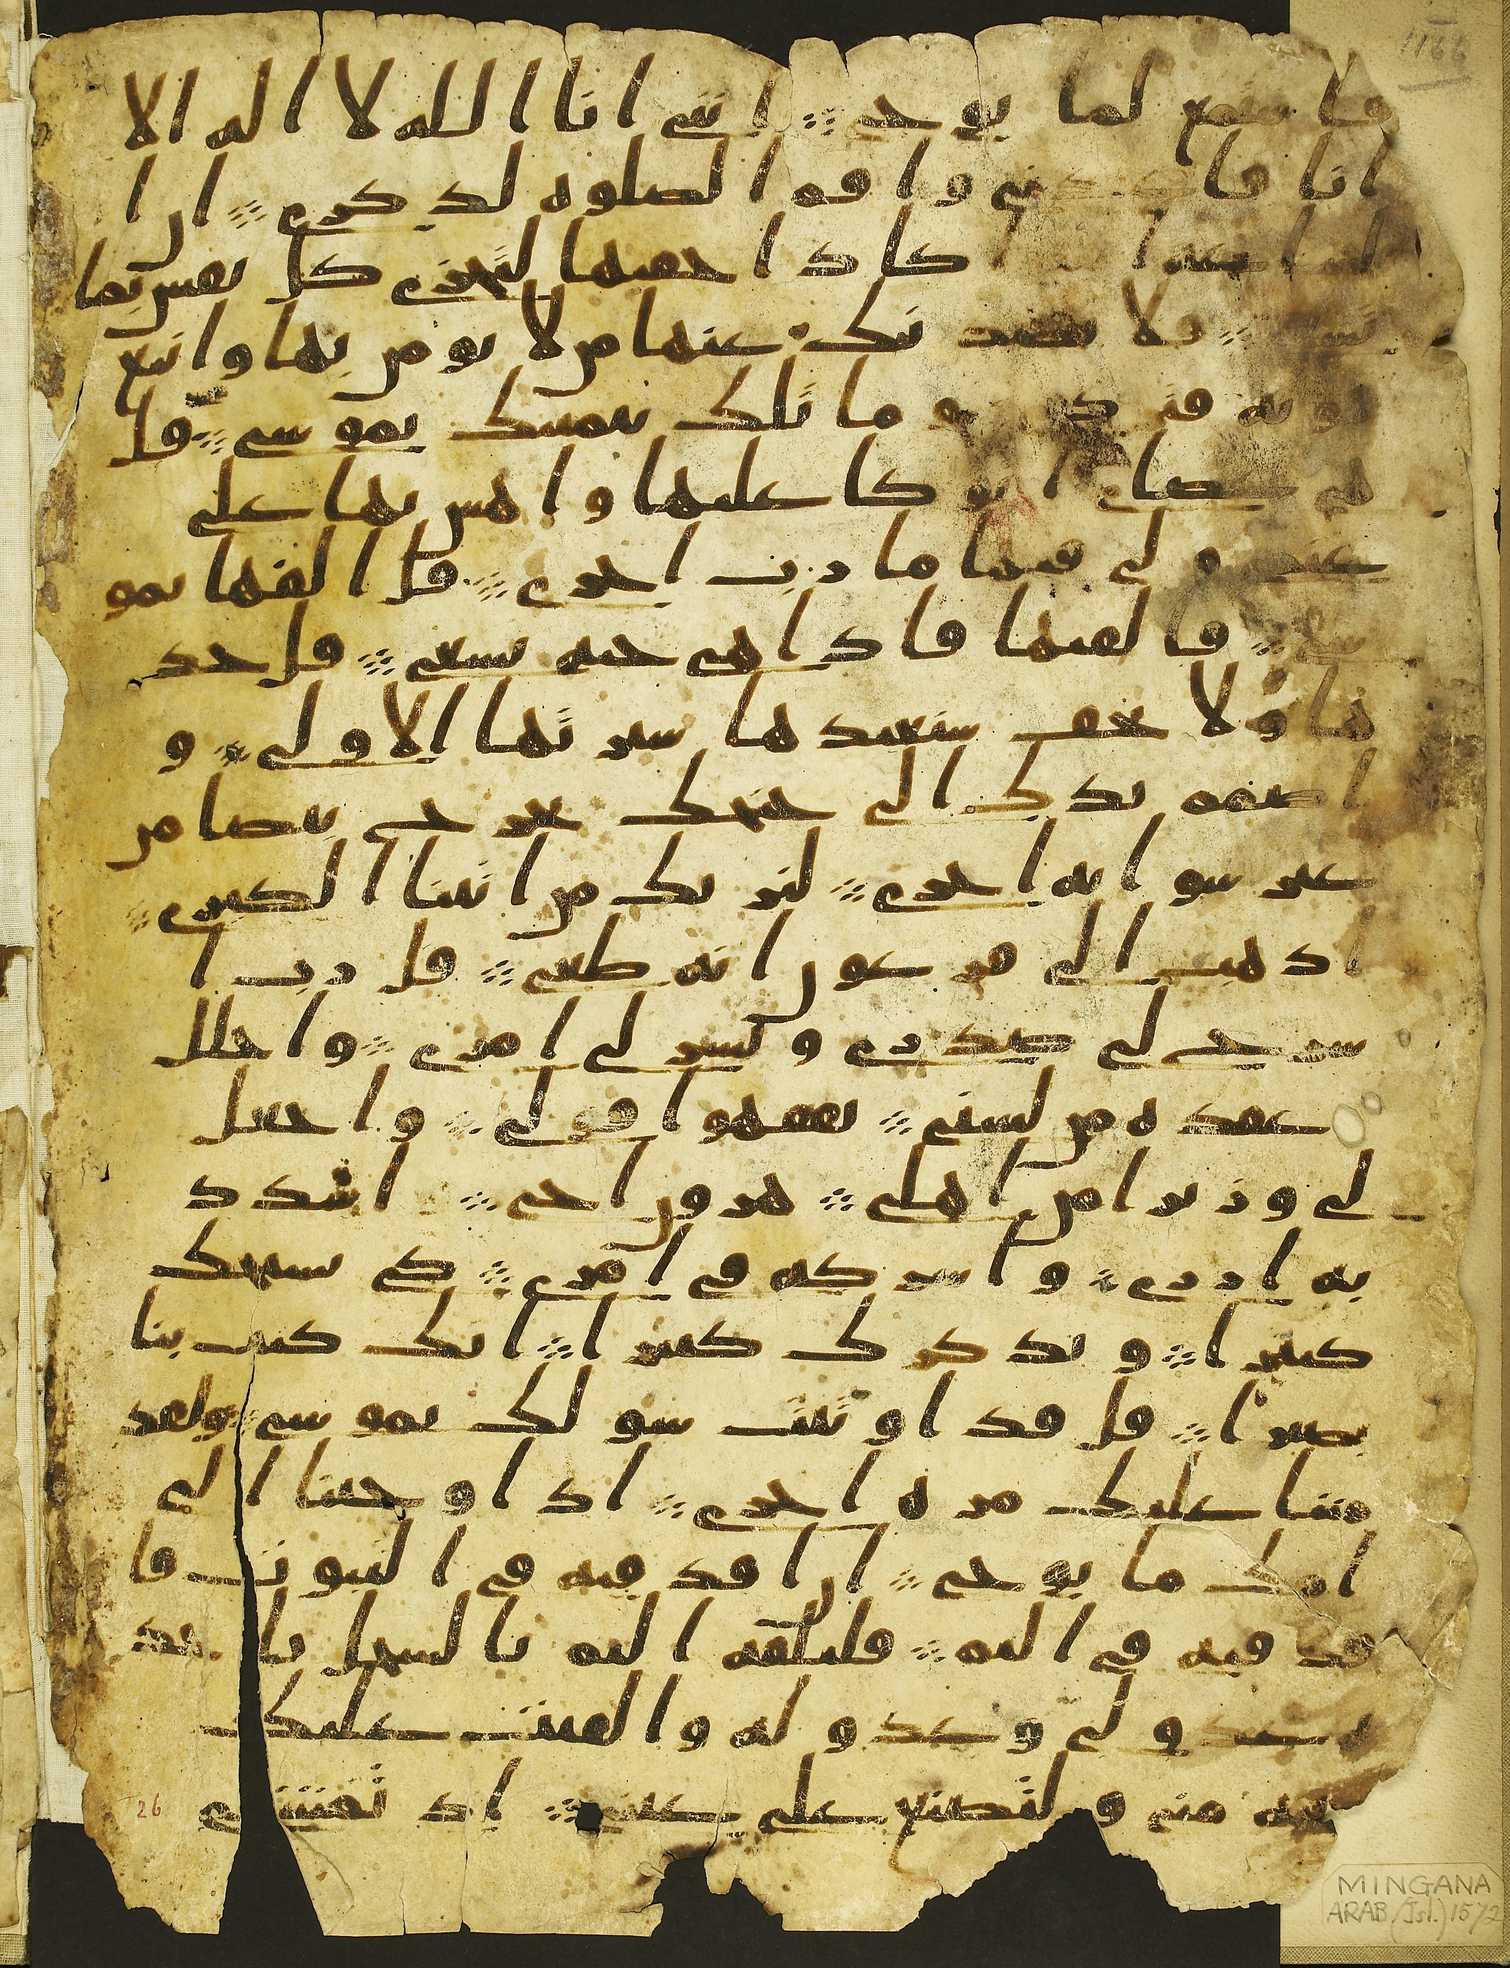 فاستمع لما يوحى ۞ انني انا الله لا اله الا
انا فاعبدني واقم الصلوه لذكري ۞ ان ا
لساعه اكاد اخفيها لتجزى كل نفس بما
تسعى ۞ فلا يصدنك عنها من لا يومن بها واتبع
هويه فتردى وما تلك بيمينك يموسى ۞ قل
هي عصاي اتوكا عليها واهش بها على
غنمي ولي فيها مارب اخرى ۞ قل القها يمو
سى ۞ فالقيها فاذا هي حيه تسعى ۞ قل خذ
ها ولا تخف سنعيدها سيرتها الاولى ۞ و
اضمم يدك الى جنحك تخرج بيضا من
غير سو ايه اخرى ۞ لنريك من ايتنا الكبرى ۞
اذهب الى فرعون انه طغى ۞ قل رب ا
شرح لي صدري ويسر لي امري ۞ واحلل
عقده من لسني ۞ يفقهوا قولي ۞ واجعل
لي وزيرا من اهلي ۞ هرون اخي ۞ اشدد
به ازري ۞ واشركه في امري ۞ كي نسبحك
كثيرا ۞ ونذكرك كثيرا ۞ انك كنت بنا
بصيرا ۞ قل قد اوتيت سولك يموسى ۞ ولقد
مننا عليك مره اخرى ۞ اذ اوحينا الى
امك ما يوحى ۞ ان اقذفيه في التبوت فا
قذفيه في اليم ۞ فليلقه اليم بالسحل ياخذ
ه عدو لي وعدو له والقيت عليك
محبه مني ولتصنع على عيني ۞ اذ تمشي
1166
26
MINGANA
ARAB (Isl.) 1572